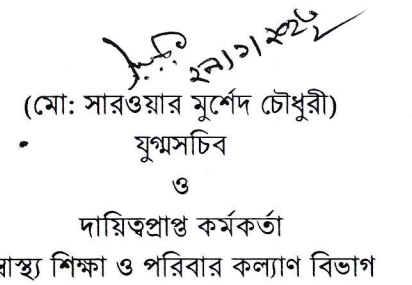 ২৯/১/২০২৫
(মো: সারওয়ার মুর্শেদ চৌধুরী)
যুগ্মসচিব
ও
দায়িত্বপ্রাপ্ত কর্মকর্তা
শিক্ষা ও পরিবার কল্যাণ বিভাগ